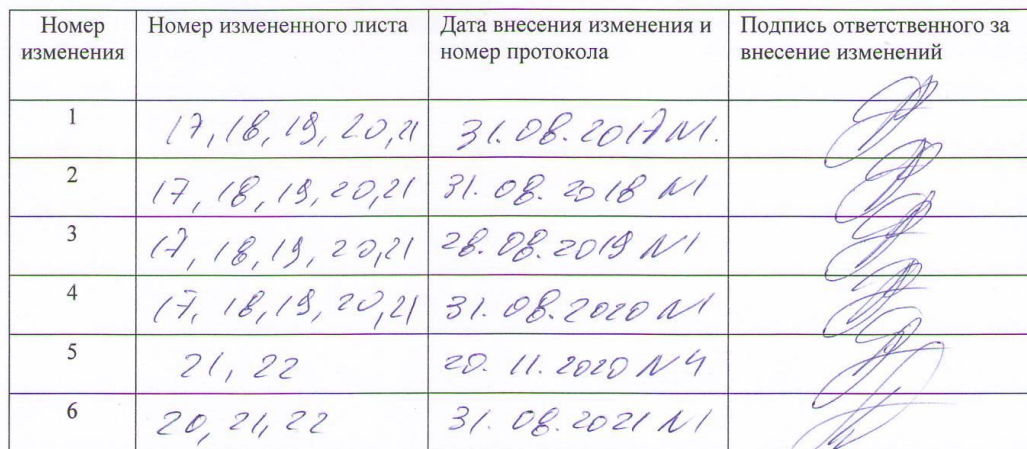 Номер изменения | Номер измененного листа | Дата внесения изменения и номер протокола | Подпись ответственного за внесение изменений
1 | 17, 18, 19, 20, 21 | 31.08.2017 N1.
2 | 17, 18, 19, 20, 21 | 31.08.2018 N1
3 | 17, 18, 19, 20, 21 | 28.08.2019 N1
4 | 17, 18, 19, 20, 21 | 31.08.2020 N1
5 | 21, 22 | 20.11.2020 N4
6 | 20, 21, 22 | 31.08.2021 N1